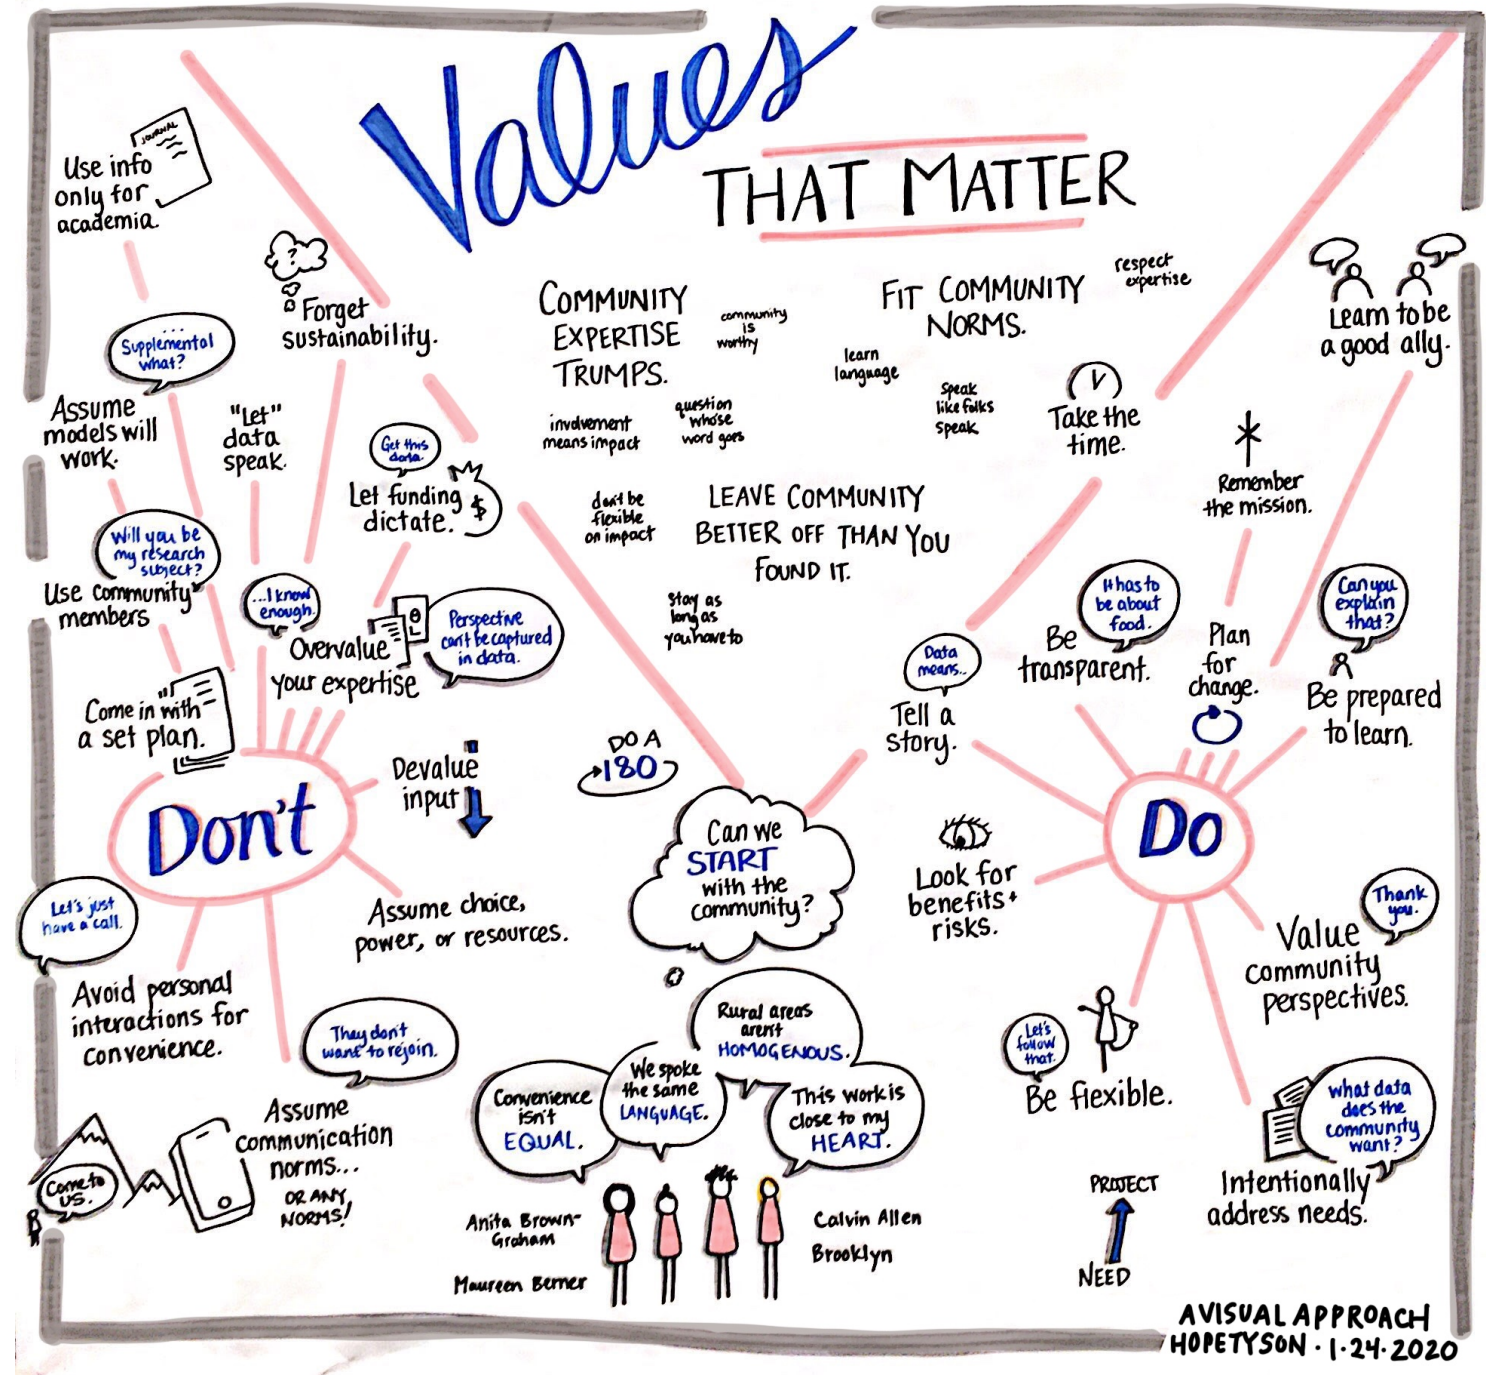 Values
THAT MATTER
JOURNAL
Use info
only for
academia.
?
Forget
sustainability.
...
Supplemental
what?
Assume
models will
work.
"Let"
data
speak.
Get this
data.
Let funding
dictate.
$
Will you be
my research
subject?
Use community
members
...I know
enough.
Overvalue
your expertise
Perspective
can't be captured
in data.
Come in with
a set plan.
Don't
Devalue
input
Assume choice,
power, or resources.
Let's just
have a call.
Avoid personal
interactions for
convenience.
They don't
want to rejoin.
Assume
communication
norms...
OR ANY
NORMS!
Come to
us.
COMMUNITY
EXPERTISE
TRUMPS.
community
is
worthy
involvement
means impact
question
whose
word goes
FIT COMMUNITY
NORMS.
respect
expertise
learn
language
speak
like folks
speak
don't be
flexible
on impact
LEAVE COMMUNITY
BETTER OFF THAN YOU
FOUND IT.
stay as
long as
you have to
DO A
180
Can we
START
with the
community?
Rural areas
aren't
HOMOGENOUS.
We spoke
the same
LANGUAGE.
Convenience
isn't
EQUAL.
This work is
close to my
HEART.
Anita Brown-
Graham
Maureen Berner
Calvin Allen
Brooklyn
Take the
time.
Learn to be
a good ally.
Remember
the mission.
It has to
be about
food.
Be
transparent.
Plan
for
change.
Can you
explain
that?
Be prepared
to learn.
Data
means...
Tell a
story.
Do
Look for
benefits +
risks.
Thank
you.
Value
community
perspectives.
Let's
follow
that.
Be flexible.
What data
does the
community
want?
Intentionally
address needs.
PROJECT
NEED
A VISUAL APPROACH
HOPE TYSON · 1·24·2020